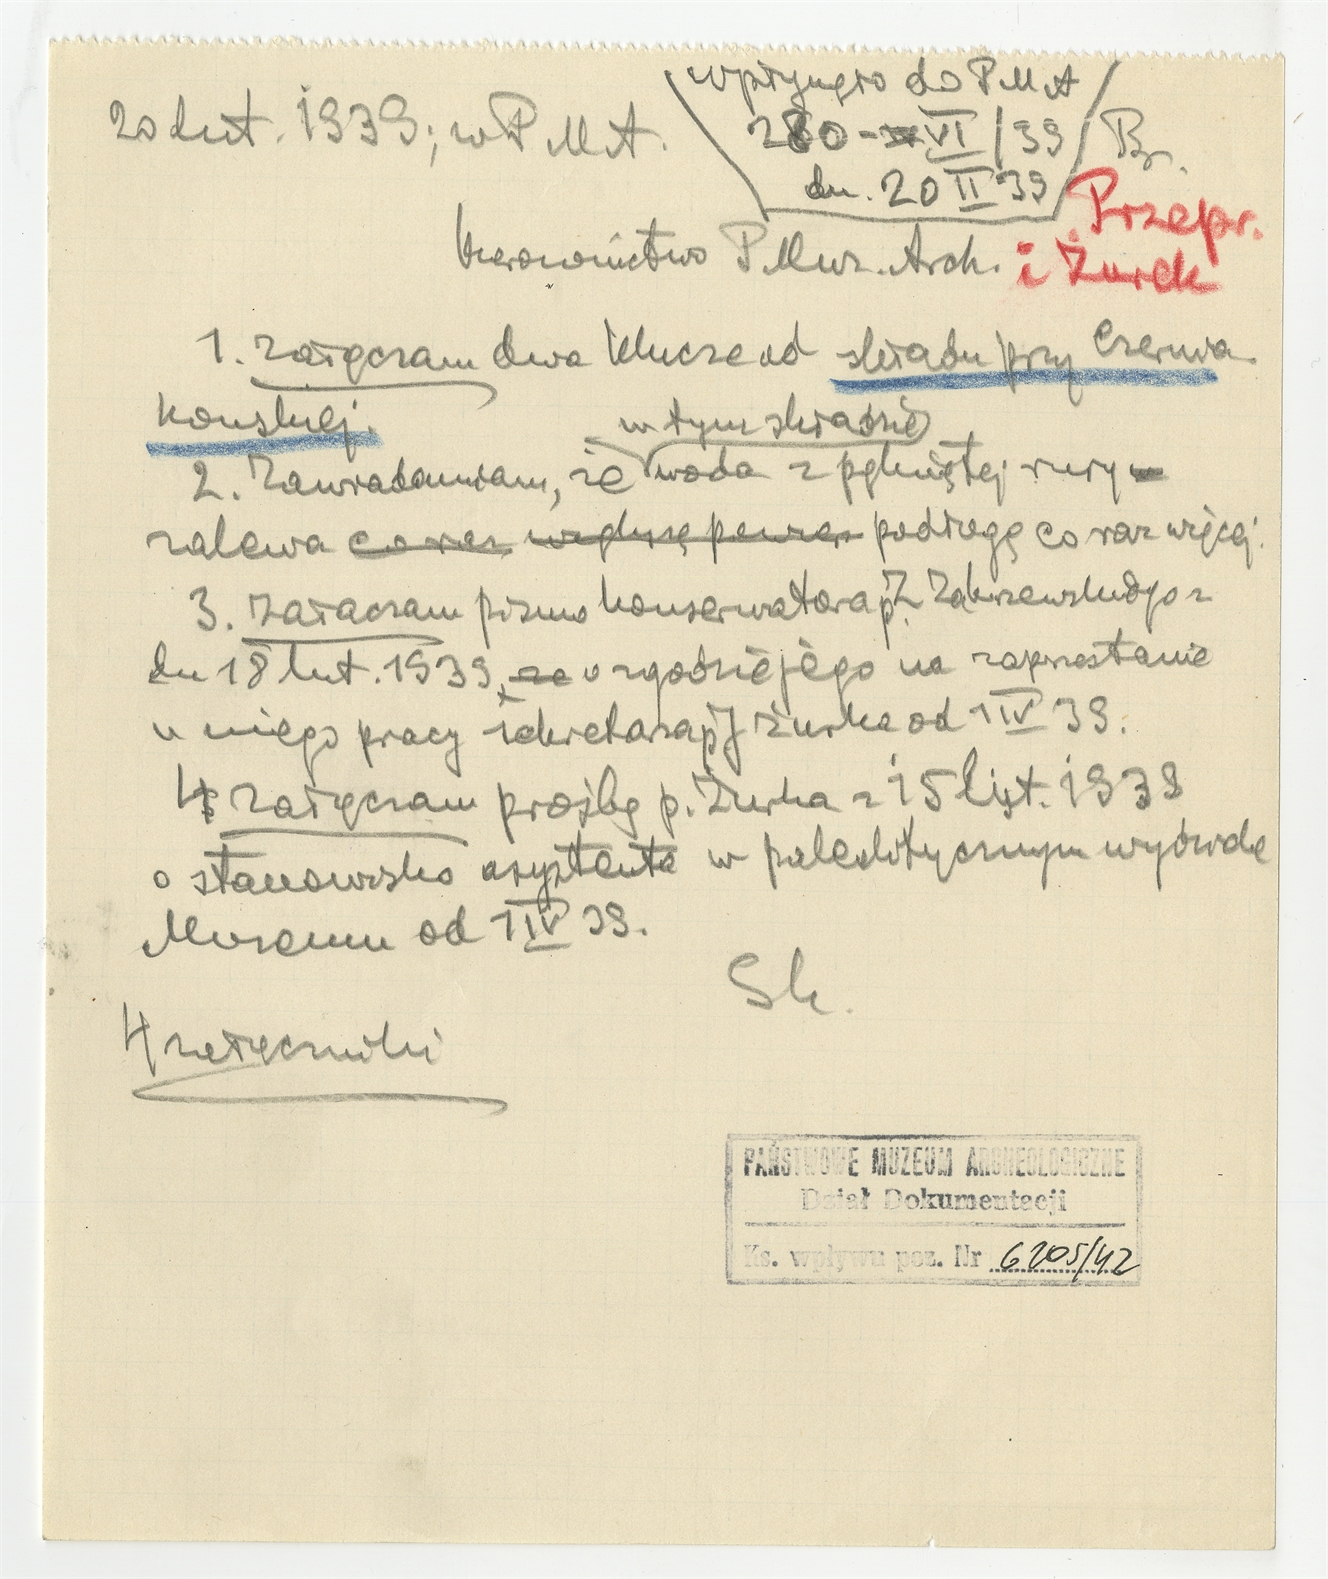 wpłynęło do PMA
20 lut. 1939; w P M A.
280-VI/39 Br.
dn. 20 II 39
Przepr.
i Żurek
Kierownictwo P. Muz. Arch.
1. Załączam dwa klucze od składu przy Czerwia-
kowskiej.
w tym składzie
2. Zawiadamiam, że woda z pękniętej rury
zalewa co raz podłogę co raz więcej.
3. Załączam pismo konserwatora p. Z. Zakrzewskiego z
dn 18 lut. 1939, o zgodzie jego na zaprzestanie
u niego pracy sekretarza p. J Żurka od 1 IV 39.
4 Załączam prośbę p. Żurka z 15 list. 1939
o stanowisko asystenta w paleolitycznym wydziale
Muzeum od 1 IV 39.
Sk.
4 załączniki
PAŃSTWOWE MUZEUM ARCHEOLOGICZNE
Dział Dokumentacji
Ks. wpływu poz. Nr 6205/42